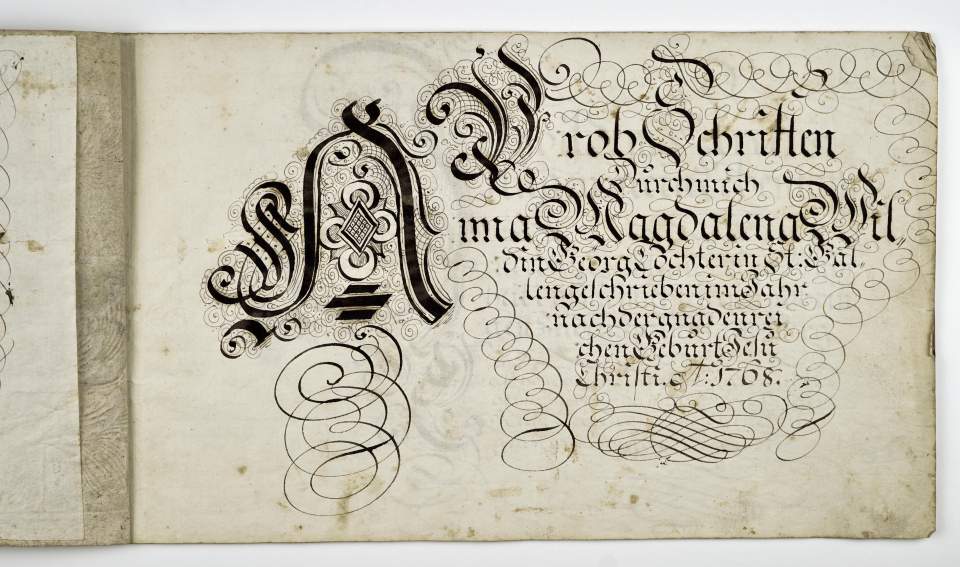 Prob Schrifften
Durch mich
Anna Magdalena Wil„
din Georg Tochter in St: Gal
len geschrieben im Jahr
nach der gnaden rei
chen Geburt Jesu
Christi. A: 1768.